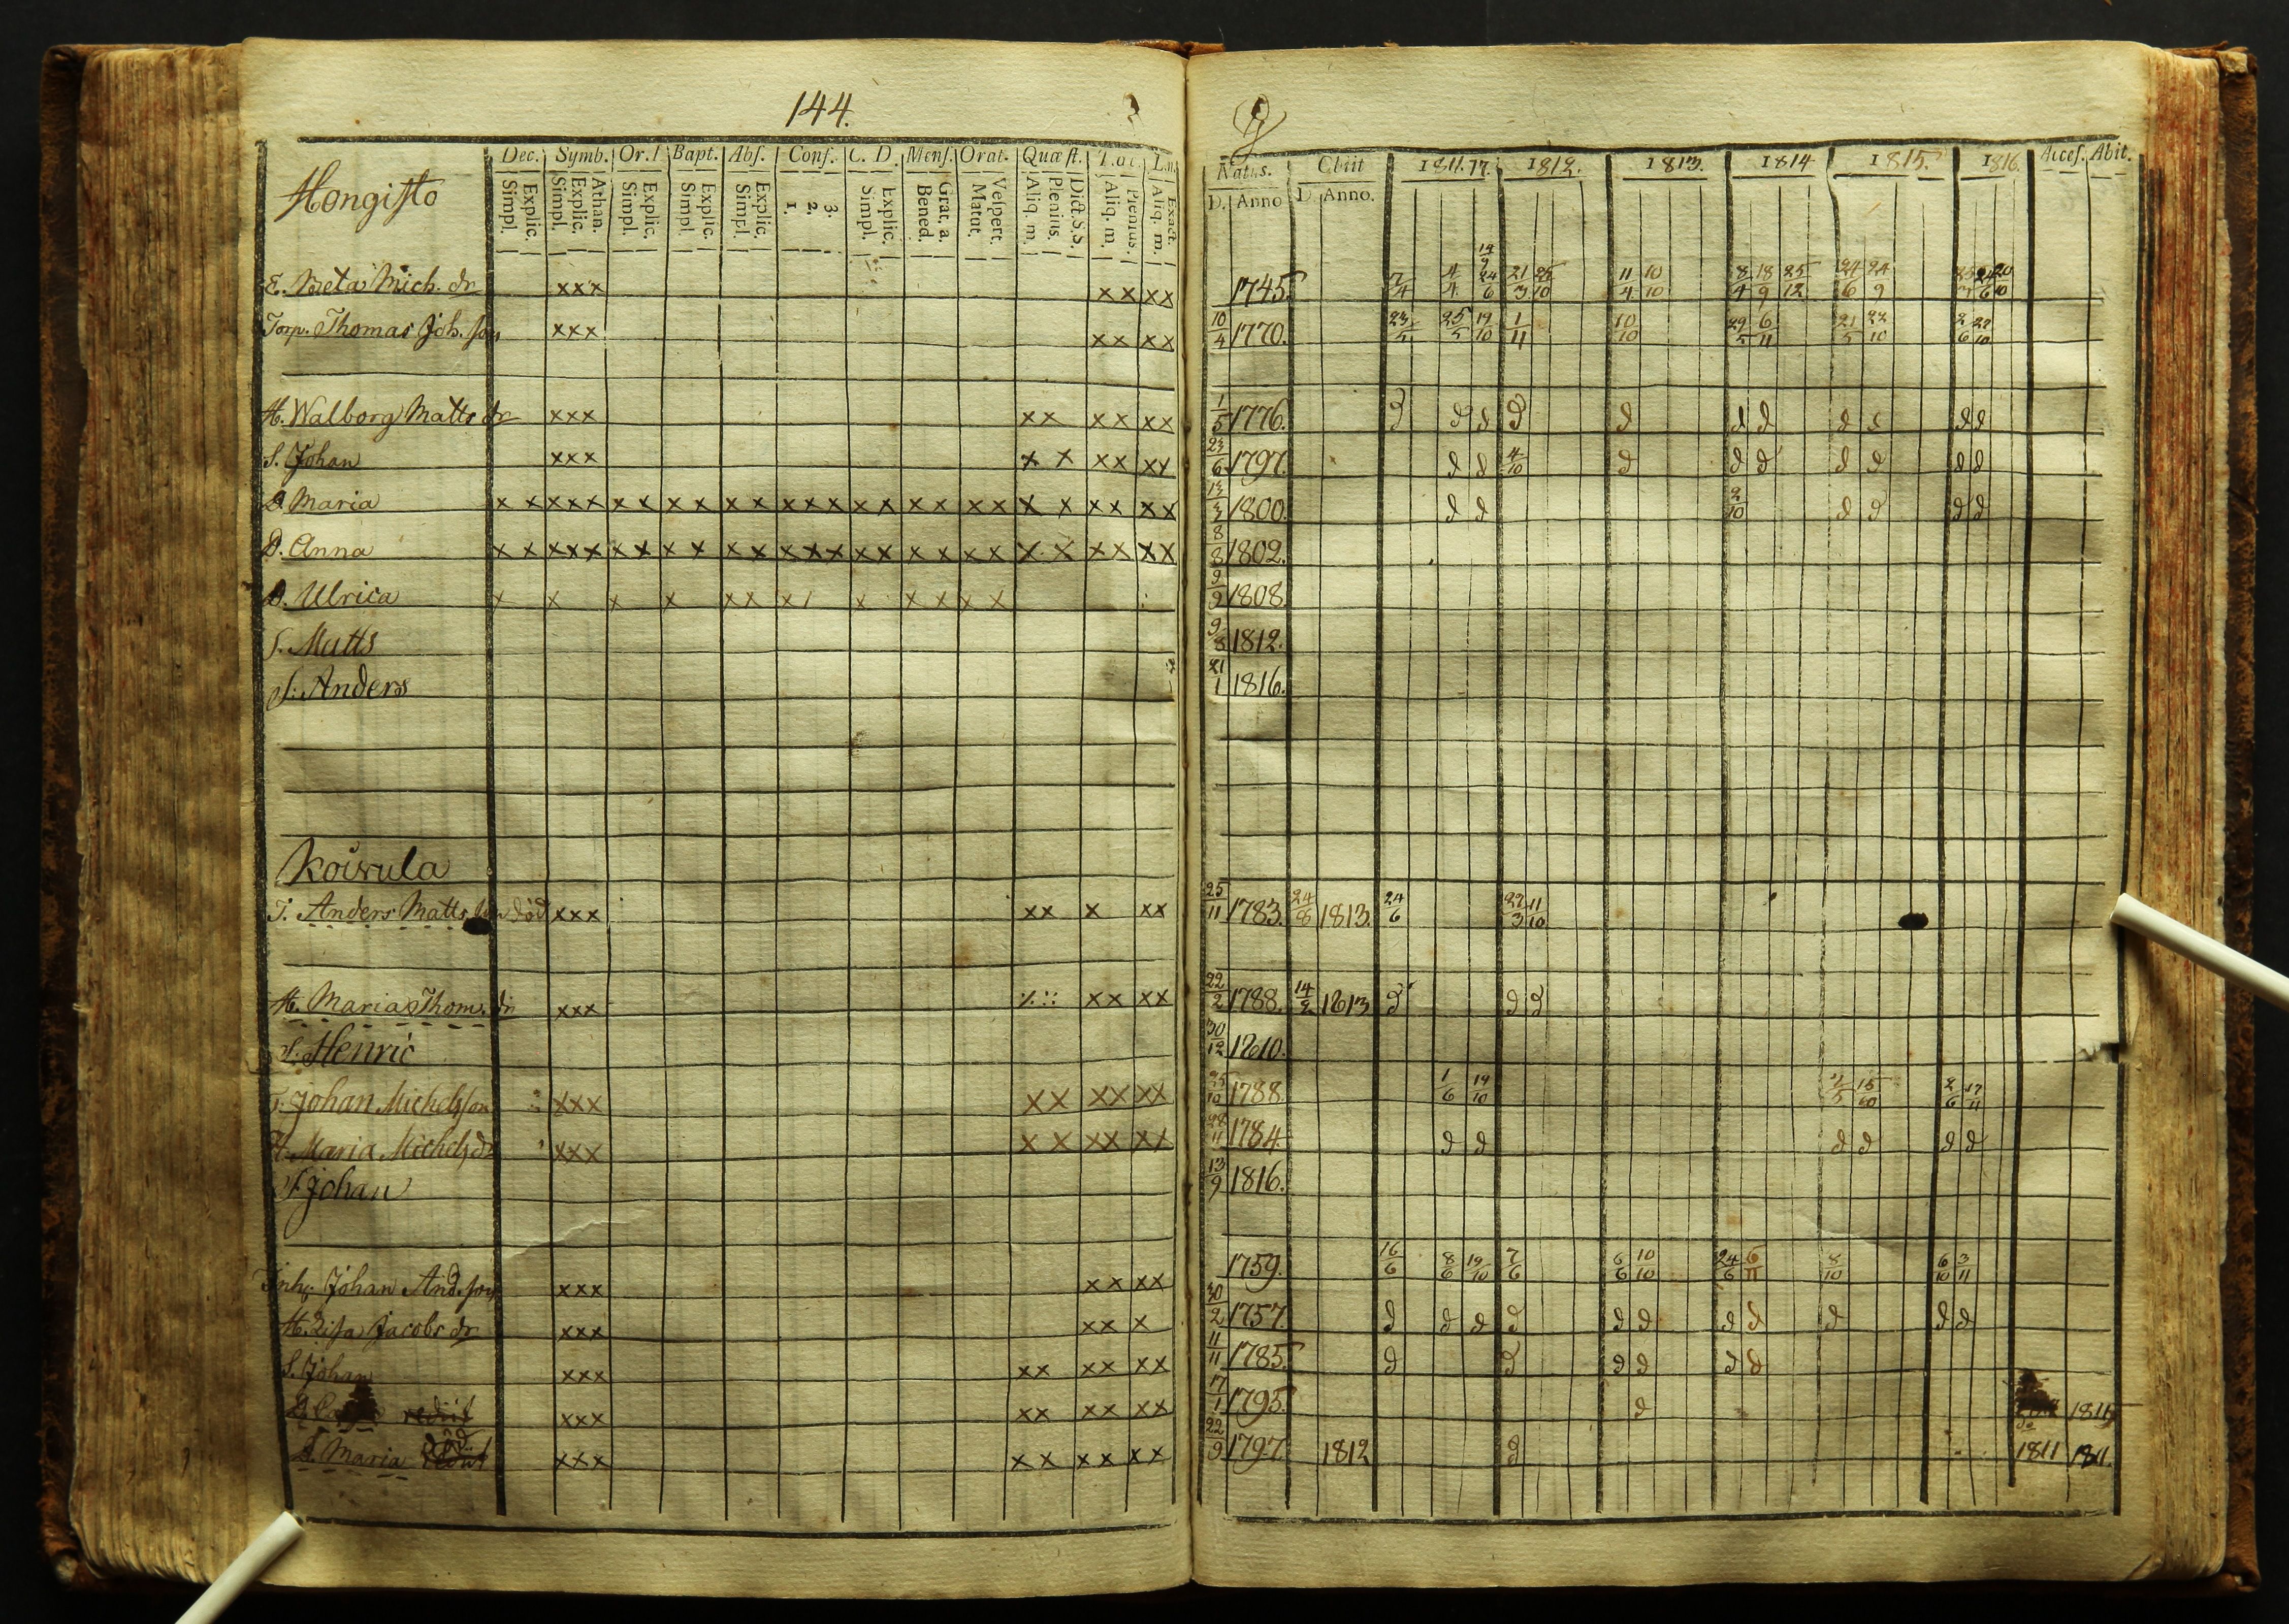 144.
Hongisto
Dec. Symb. Or. Bapt. Abs. Conf. C. D. Mens. Orat. Quæst.
Simpl. Explic. Simpl. Explic. Athan. Simpl. Explic. Simpl. Explic. Simpl. Explic. 1. 2. 3. Simpl. Explic. Bened. Grat. a. Matut. Vespert. Aliq. m. Plenius. Dict. S.S. Aliq. m. Plenius. Aliq. m. Exact.
Natus. Obiit 1811. 1812. 1813. 1814 1815. 1816. Acces. Abit.
D. Anno D. Anno.
E. Beta Mich. dr xxx xx xx 1745. 7/4 4/4 24/6 21/3 25/10 11/4 10/10 8/4 18/9 25/12 24/6 24/9
Torp. Thomas Joh. son xxx xx xx 10/4 1770. 23/5 25/5 19/10 1/11 10/10 29/5 6/11 21/5 22/10 2/6 27/10
H. Walborg Matts dr xxx xx xx xx 1/5 1776. d d d d d d d d d d d
S. Johan xxx x x xx xx 23/6 1797. d d 4/10 d d d d d d d
D. Maria x x xxx x x x x x x xxx x x x x x x x x xx xx 1800. d d 2/10 d d d d
D. Anna x x xxx x x x x x x xxx x x x x x x x x xx xx 8/8 1802.
D. Ulrica x x x x xx x x x x x x 9/9 1808.
S. Matts 9/8 1812.
S. Anders 21/1 1816.
Koivula
T. Anders Matts son död xxx xx x xx 25/11 1783. 24/8 1813. 24/6 22/3 11/10
H. Maria Thom. dr xxx xx xx 22/2 1788. 14/2 1813 d d d
S. Henric 30/12 1810.
T. Johan Michelsson xxx xx xx xx 25/10 1788. 1/6 19/10 15/10 2/6 17/11
H. Maria Michelsdr xxx x x xx xx 11 1784. d d d d d d
S. Johan 13/9 1816.
Inh. Johan And. son xxx xx xx 1759. 16/6 8/6 19/10 7/6 6/6 10/10 24/6 6/11 8/10 6/10 3/11
H. Lisa Jacobs dr xxx xx x 30/2 1757. d d d d d d d d d d d
S. Johan xxx xx xx xx 11/11 1785. d d d d d d
rediit xxx xx xx xx 17/1 1795. d
D. Maria död xxx x x x x x x 22/9 1797. 1812 d 1811 1811.